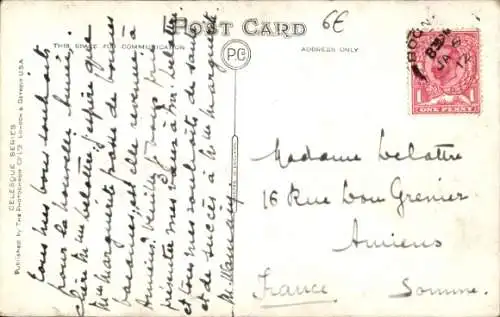 POST CARD
6E
THIS SPACE FOR COMMUNICATION
ADDRESS ONLY
PC
BOGN
JA 6
12
1
1
ONE PENNY
CELESQUE SERIES
Published by THE PHOTOCHROM CO. LTD. LONDON & DETROIT U.S.A.
Tous mes bons souhaits
pour la nouvelle année,
chère Mme Delattre, j'espère que
Melle Marguerite passe de bonnes
vacances, est elle revenue à
Amiens? Veuillez je vous prie
présenter mes vœux à Mr. Delattre
et tous mes souhaits de santé
et de succès à Melle Marguerite
Madame Delattre
16 Rue Don Grenier
Amiens
France Somme.